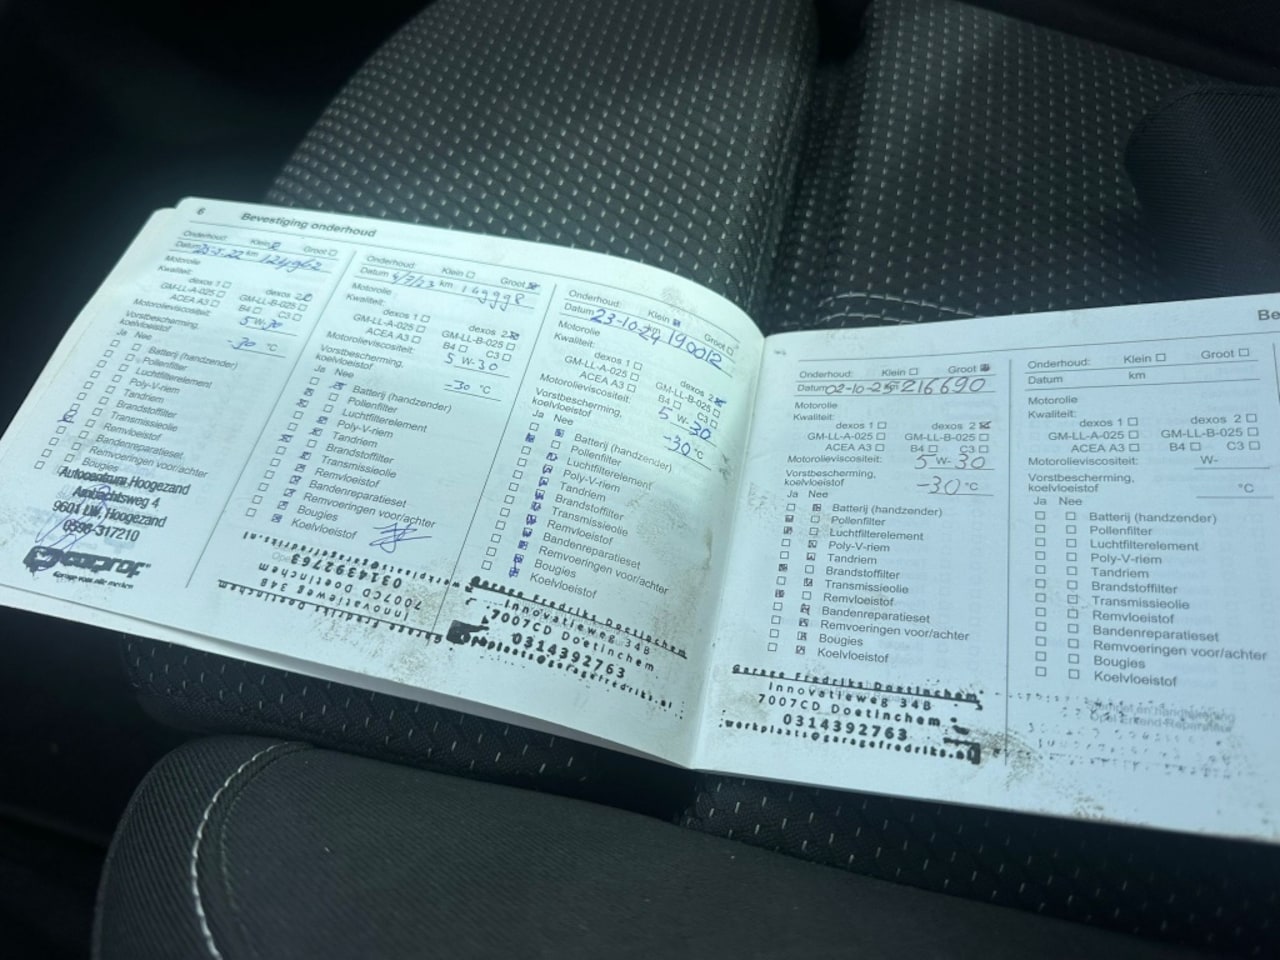 6 Bevestiging onderhoud
Onderhoud: Klein Groot
Datum 25-5-22 km
Motorolie
Kwaliteit:
dexos 1 dexos 2
GM-LL-A-025 GM-LL-B-025
ACEA A3 B4 C3
Motorolieviscositeit: 5 W-30
Vorstbescherming,
koelvloeistof -30 °C
Ja Nee
Batterij (handzender)
Pollenfilter
Luchtfilterelement
Poly-V-riem
Tandriem
Brandstoffilter
Transmissieolie
Remvloeistof
Bandenreparatieset
Remvoeringen voor/achter
Bougies
Autocentrum Hoogezand
Ambachtsweg 4
9601 LW, Hoogezand
0598-317210
Onderhoud: Klein Groot
Datum 4/7/23 km 149998
Motorolie
Kwaliteit:
dexos 1 dexos 2
GM-LL-A-025 GM-LL-B-025
ACEA A3 B4 C3
Motorolieviscositeit: 5 W-30
Vorstbescherming,
koelvloeistof -30 °C
Ja Nee
Batterij (handzender)
Pollenfilter
Luchtfilterelement
Poly-V-riem
Tandriem
Brandstoffilter
Transmissieolie
Remvloeistof
Bandenreparatieset
Remvoeringen voor/achter
Bougies
Koelvloeistof
Garage Fredriks Doetinchem
Innovatieweg 34B
7007CD Doetinchem
0314392763
werkplaats@garagefredriks.nl
Onderhoud: Klein Groot
Datum 23-10-24 km 190012
Motorolie
Kwaliteit:
dexos 1 dexos 2
GM-LL-A-025 GM-LL-B-025
ACEA A3 B4 C3
Motorolieviscositeit: 5 W-30
Vorstbescherming,
koelvloeistof -30 °C
Ja Nee
Batterij (handzender)
Pollenfilter
Luchtfilterelement
Poly-V-riem
Tandriem
Brandstoffilter
Transmissieolie
Remvloeistof
Bandenreparatieset
Remvoeringen voor/achter
Bougies
Koelvloeistof
Garage Fredriks Doetinchem
Innovatieweg 34B
7007CD Doetinchem
0314392763
werkplaats@garagefredriks.nl
Onderhoud: Klein Groot
Datum 02-10-25 216690
Motorolie
Kwaliteit:
dexos 1 dexos 2
GM-LL-A-025 GM-LL-B-025
ACEA A3 B4 C3
Motorolieviscositeit: 5 W-30
Vorstbescherming,
koelvloeistof -30 °C
Ja Nee
Batterij (handzender)
Pollenfilter
Luchtfilterelement
Poly-V-riem
Tandriem
Brandstoffilter
Transmissieolie
Remvloeistof
Bandenreparatieset
Remvoeringen voor/achter
Bougies
Koelvloeistof
Garage Fredriks Doetinchem
Innovatieweg 34B
7007CD Doetinchem
0314392763
werkplaats@garagefredriks.nl
Be
Onderhoud: Klein Groot
Datum km
Motorolie
Kwaliteit:
dexos 1 dexos 2
GM-LL-A-025 GM-LL-B-025
ACEA A3 B4 C3
Motorolieviscositeit: W-
Vorstbescherming,
koelvloeistof °C
Ja Nee
Batterij (handzender)
Pollenfilter
Luchtfilterelement
Poly-V-riem
Tandriem
Brandstoffilter
Transmissieolie
Remvloeistof
Bandenreparatieset
Remvoeringen voor/achter
Bougies
Koelvloeistof